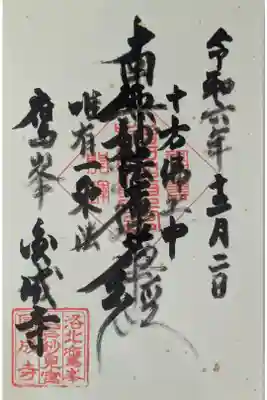 令和六年十二月二日
十方佛土中
南無妙法蓮華経
唯有一乗法
鷹峯
圓成寺
洛北鷹峯
妙見宮
成寺